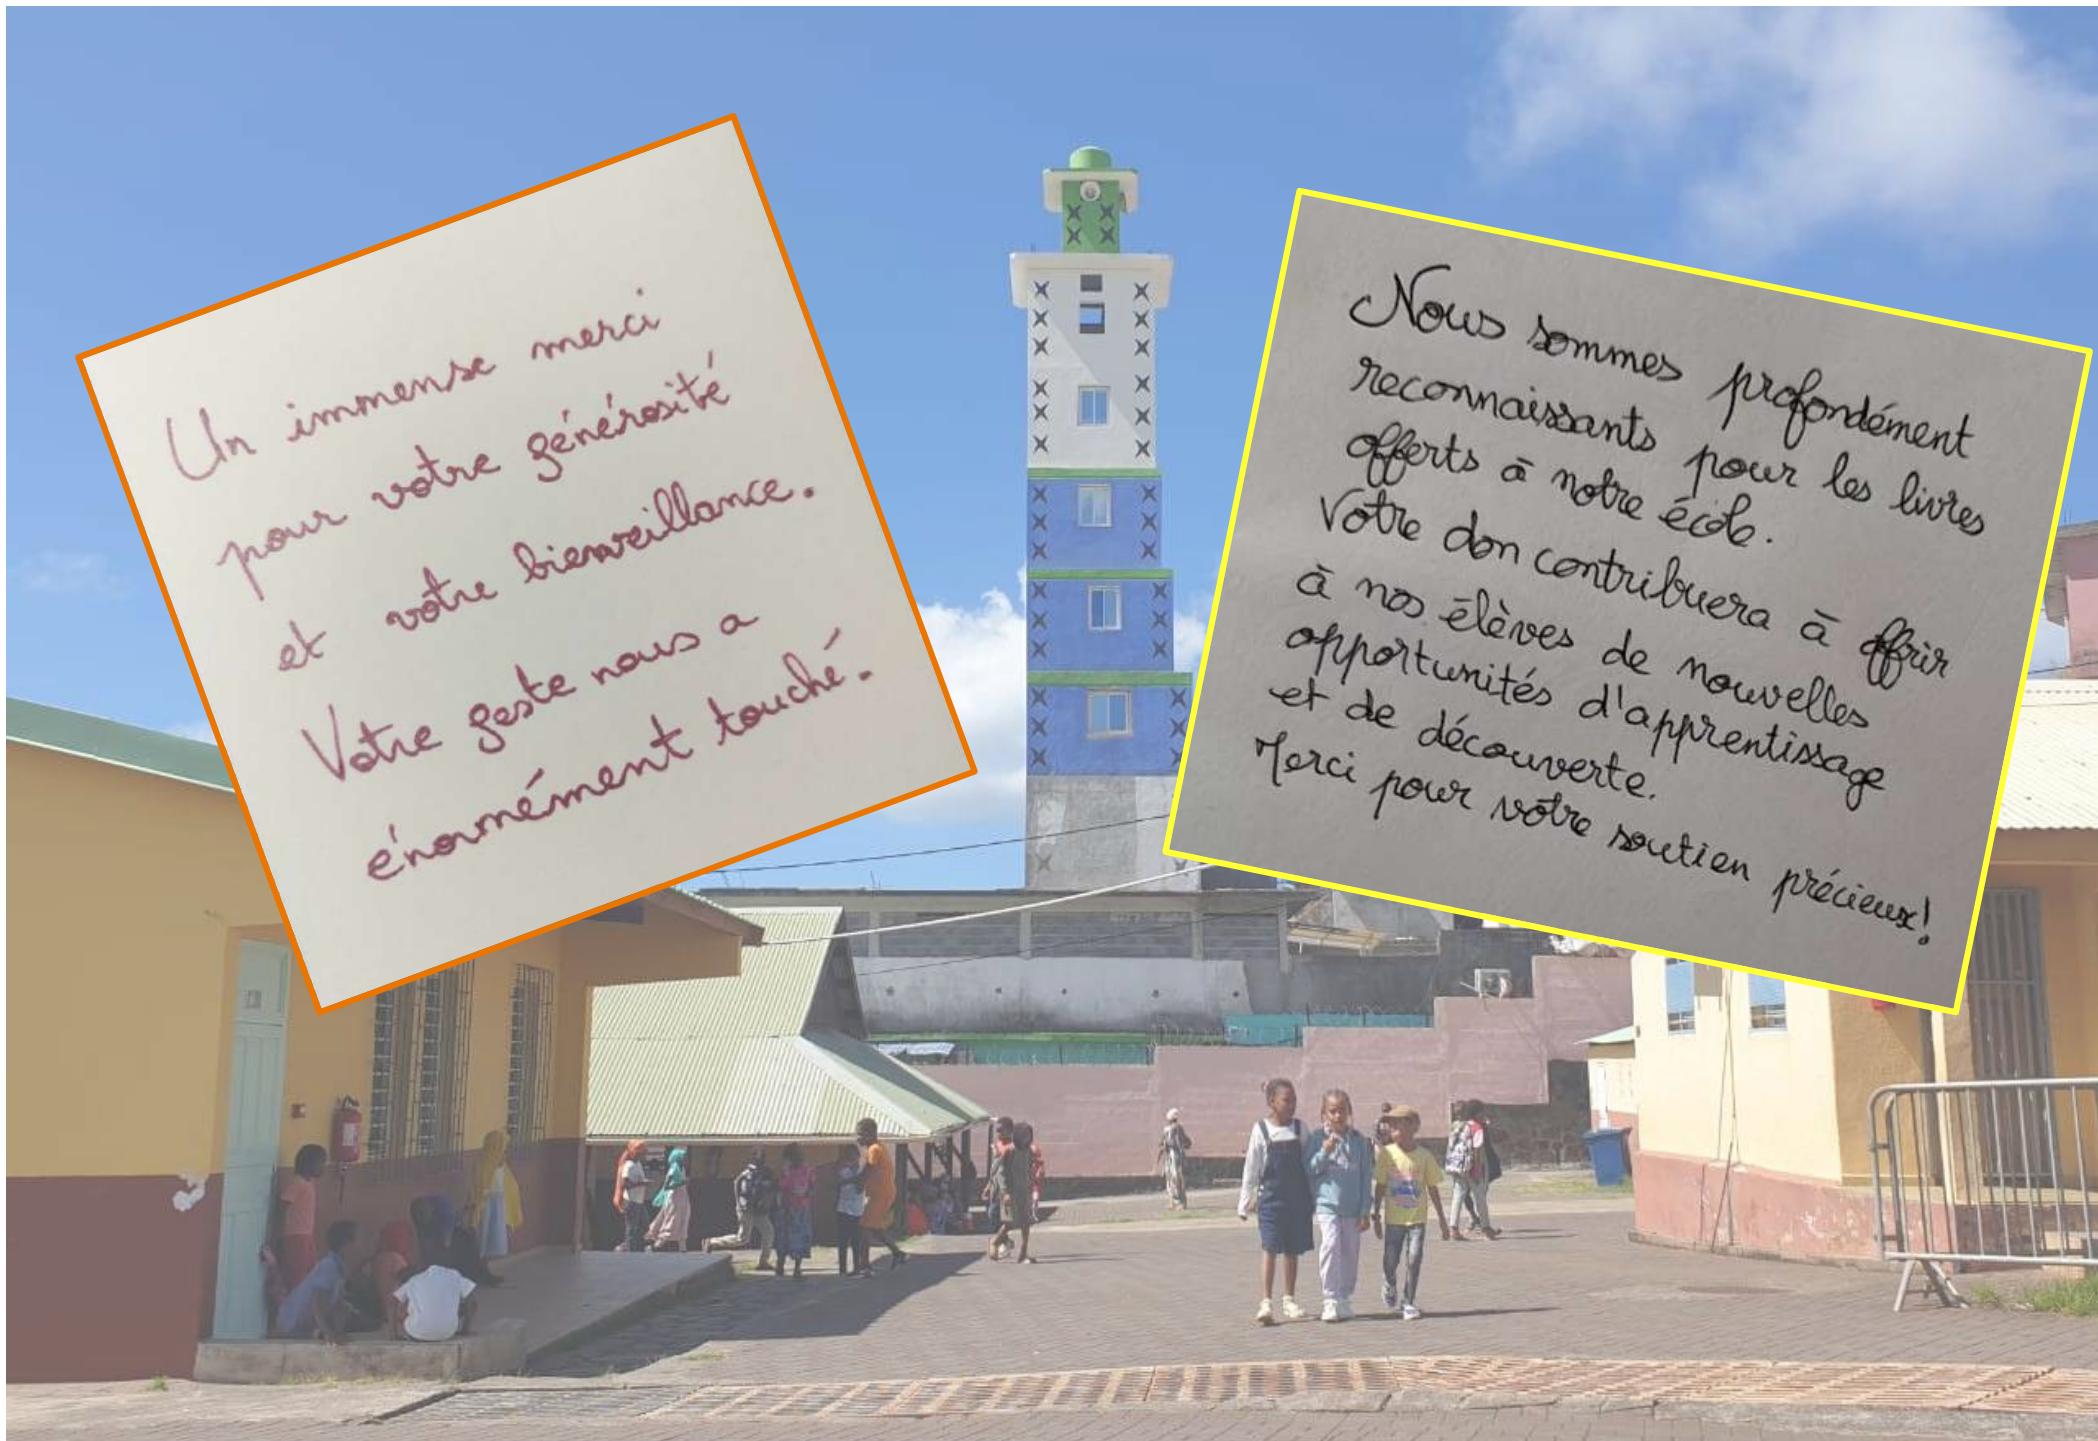 Un immense merci
pour votre générosité
et votre bienveillance.
Votre geste nous a
énormément touché.
Nous sommes profondément
reconnaissants pour les livres
offerts à notre école.
Votre don contribuera à offrir
à nos élèves de nouvelles
opportunités d'apprentissage
et de découverte.
Merci pour vôtre soutien précieux!